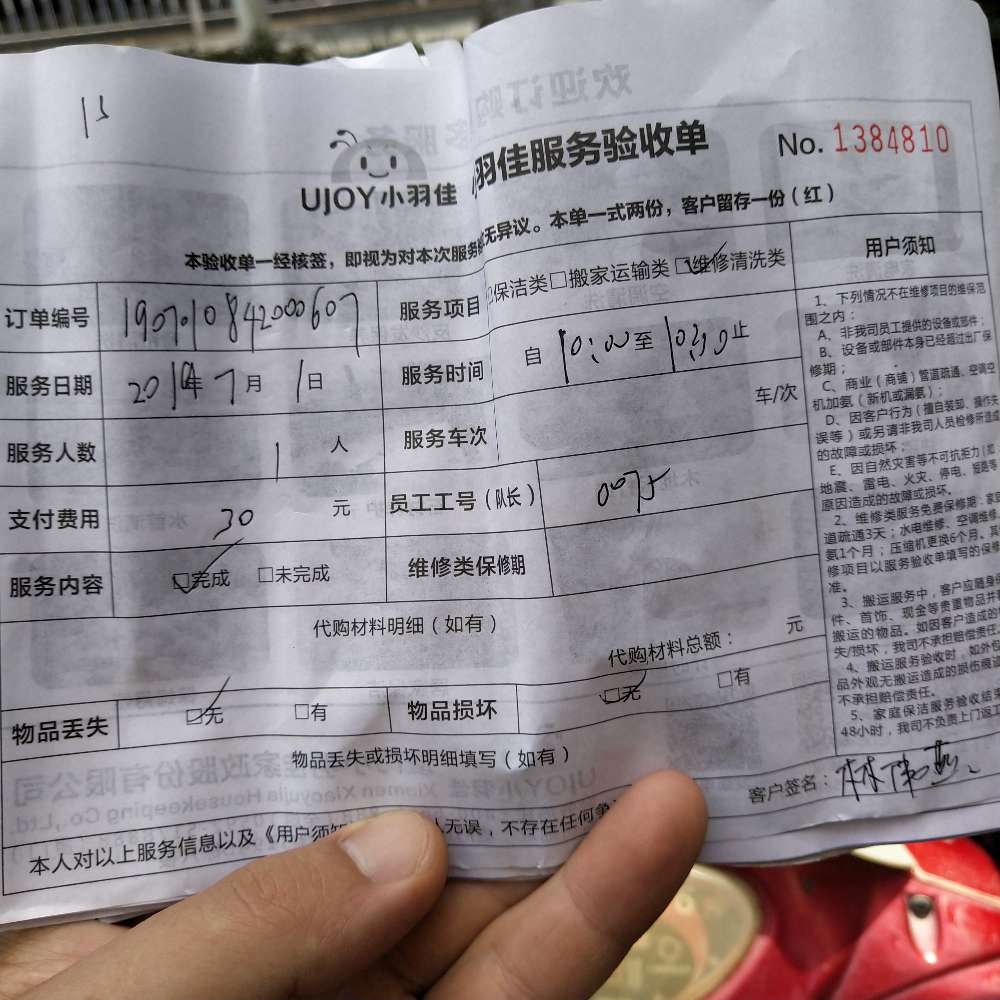 15
UJOY小羽佳
小羽佳服务验收单
No. 1384810
本验收单一经核签，即视为对本次服务 无异议。本单一式两份，客户留存一份（红）
订单编号 1907010842000607 服务项目 □保洁类 □搬家运输类 ☑维修清洗类
服务日期 2019年7月1日 服务时间 自10:00至10:30止
服务人数 1人 服务车次 车/次
支付费用 30元 员工工号（队长） 0075
服务内容 ☑完成 □未完成 维修类保修期
代购材料明细（如有）
代购材料总额： 元
物品丢失 ☑无 □有 物品损坏 ☑无 □有
物品丢失或损坏明细填写（如有）
本人对以上服务信息以及《用户须知 人无误，不存在任何争
用户须知
1、下列情况不在维修项目的维保范
围之内：
A、非我司员工提供的设备或部件；
B、设备或部件本身已经超过出厂保
修期；
C、商业（商铺）管道疏通、空调空
机加氨（新机或漏氨）；
D、因客户行为（擅自装卸、操作失
误等）或另请非我司人员检修所造成
的故障或损坏；
E、因自然灾害等不可抗拒力（如
地震、雷电、火灾、停电、短路等
原因造成的故障或损坏。
2、维修类服务免费保修期：家庭
道疏通3天；水电维修、空调维修
氨1个月；压缩机更换6个月。其
修项目以服务验收单填写的保修
准。
3、搬运服务中，客户应随身保
件、首饰、现金等贵重物品并
搬运的物品。如因客户造成的
失/损坏，我司不承担赔偿责任
4、搬运服务验收时，如外包
品外观无搬运造成的损伤痕迹
不承担赔偿责任。
5、家庭保洁服务验收结
48小时，我司不负责上门返工
客户签名：林伟燕